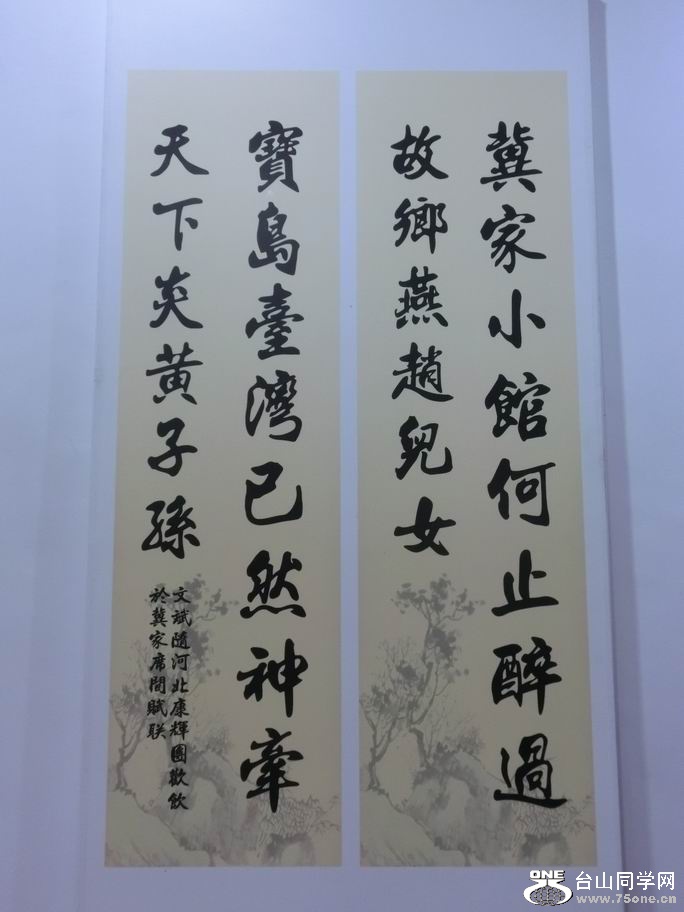 冀家小館何止醉過
故鄉燕趙兒女
寶島臺灣已然神牽
天下炎黃子孫
文斌隨河北康輝團歡飲
於冀家席間賦联
ONE 台山同学网
www.75one.cn